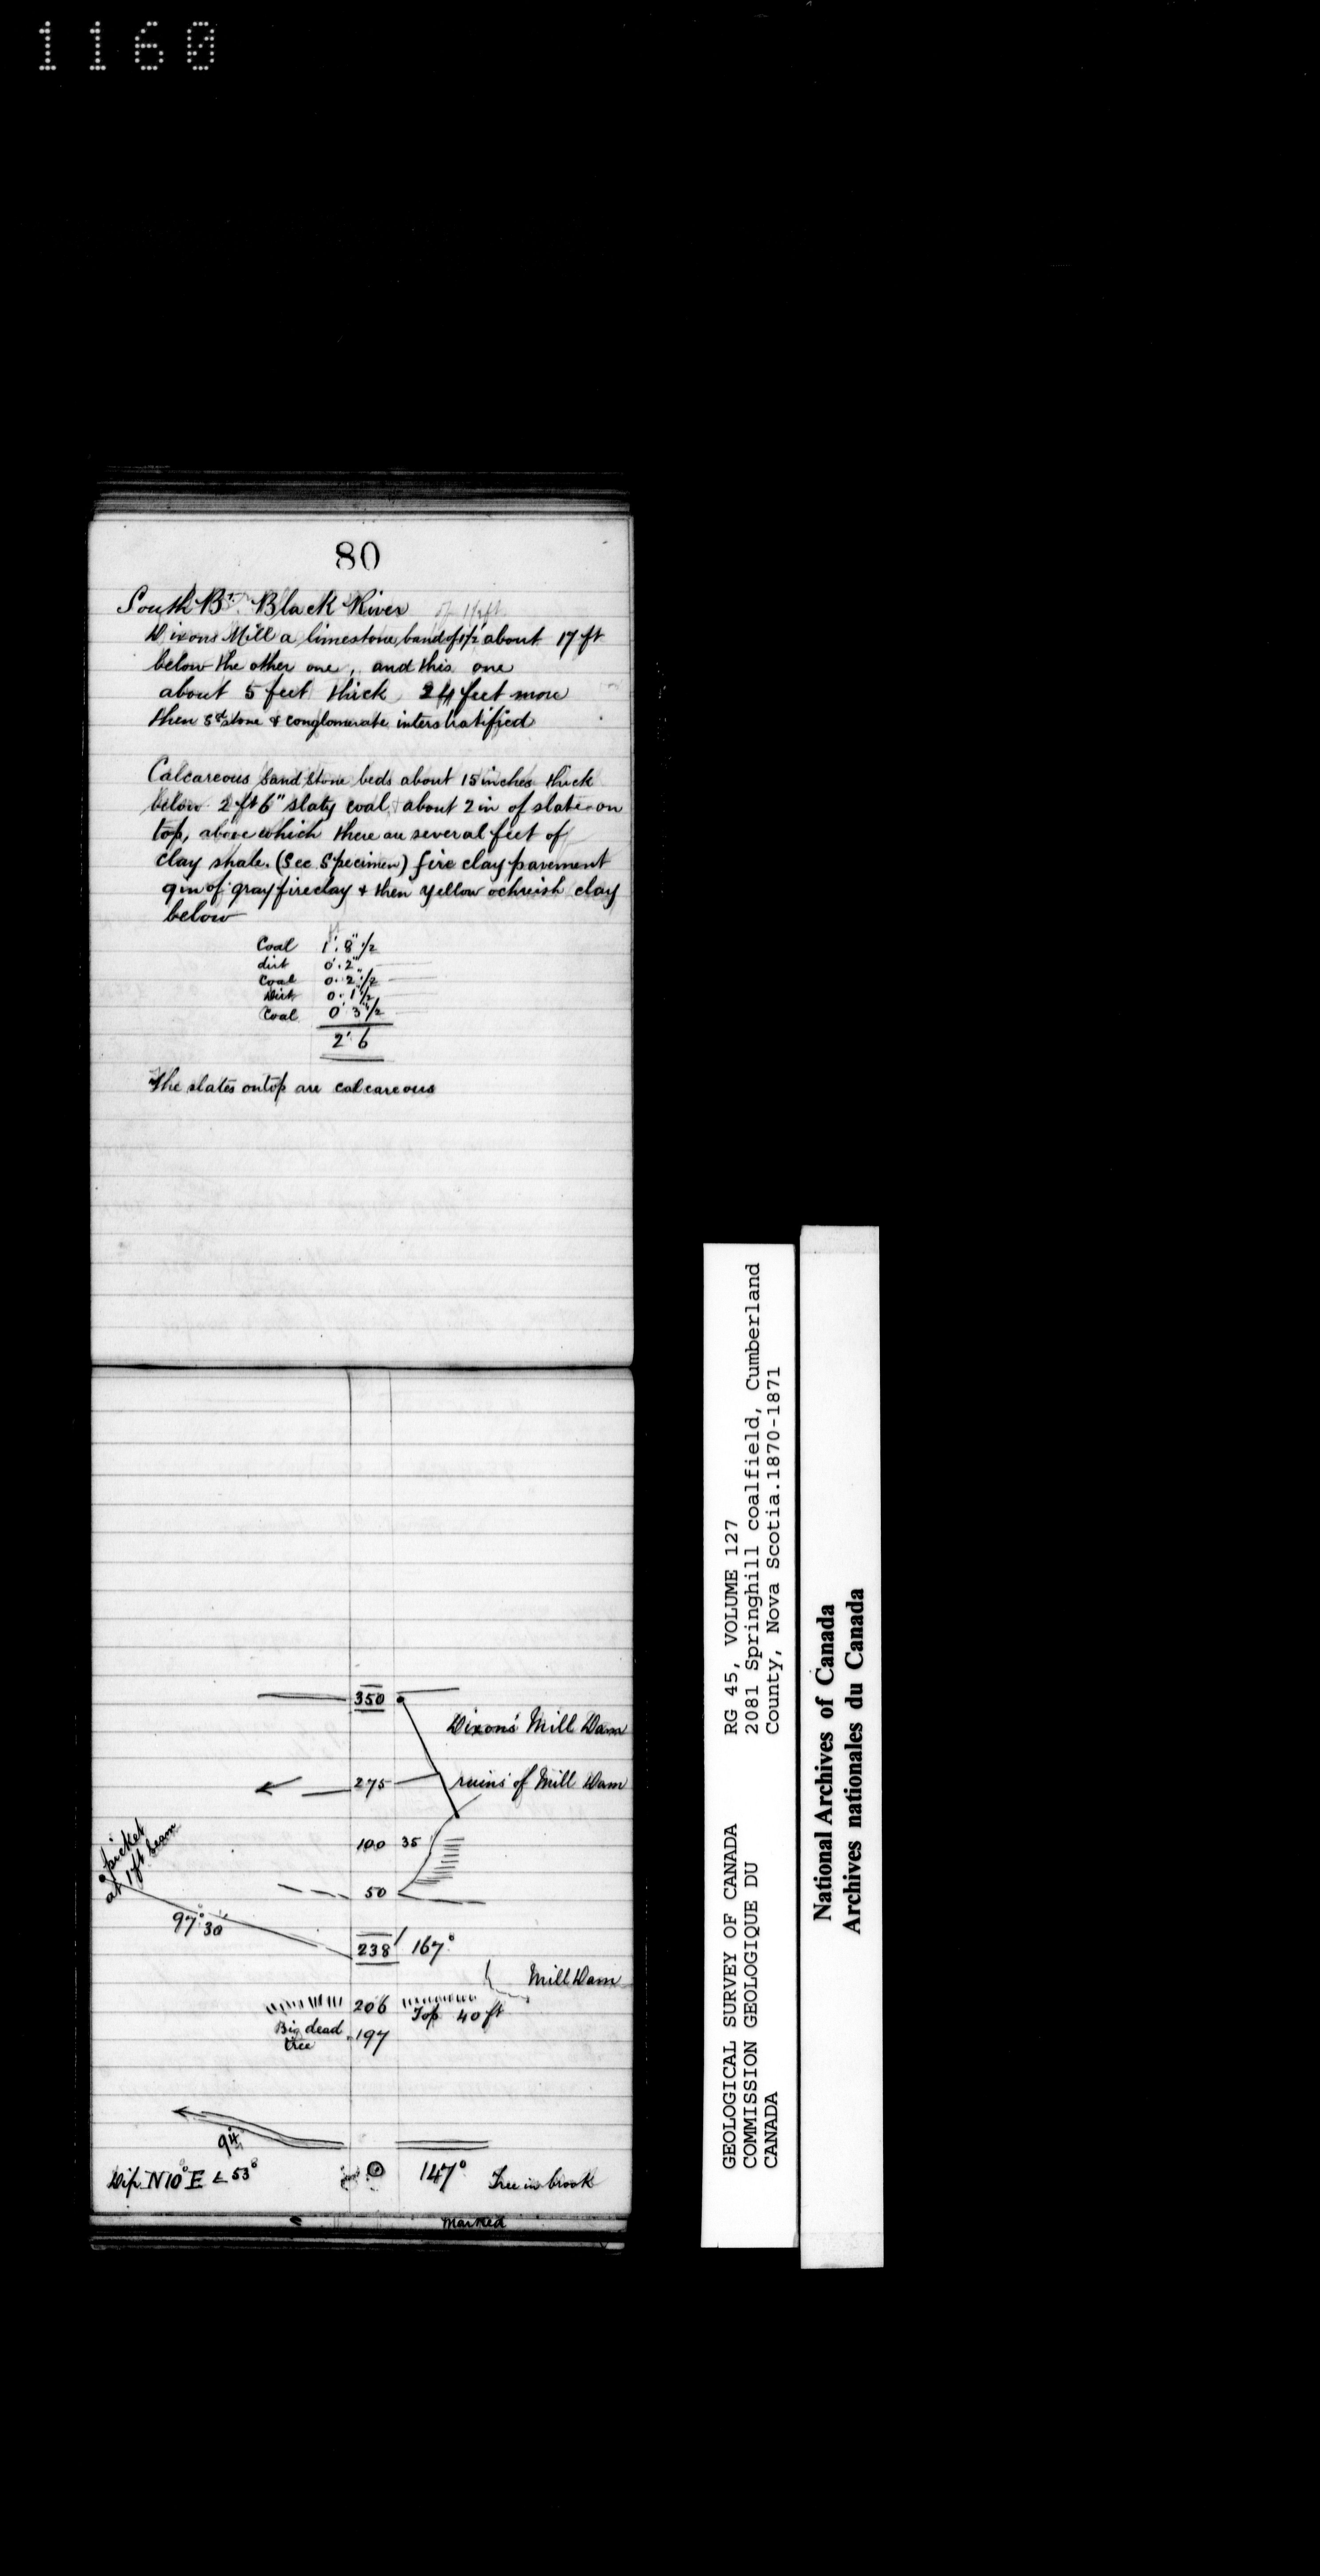 1160
80
South Br. Black River of 1½ft
Dixons Mill a limestone band of 1½' about 17 ft
below the other one, and this one
about 5 feet thick 24 feet more
then sdstone & conglomerate interstratified
Calcareous sandstone beds about 15 inches thick
below 2 ft 6" slaty coal, about 2 in of slate on
top, above which there are several feet of
clay shale. (See Specimen) fire clay pavement
9 in of gray fireclay & then yellow ochreish clay
below
Coal 1'. 8" ½
dirt 0'. 2"
Coal 0. 2" ½
Dirt 0. 1" ½
Coal 0' 3" ½
2'. 6
The slates on top are calcareous
350
Dixons' Mill Dam
275 ruins of Mill Dam
100 35
picket
at 1 ft seam
50
97° 30'
238 167°
Mill Dam
206 Top 40 ft
Big dead
tree 197
94
Dip N 10° E ∠ 53° 147° Tree in brook
marked
RG 45, VOLUME 127
2081 Springhill coalfield, Cumberland
County, Nova Scotia.1870-1871
GEOLOGICAL SURVEY OF CANADA
COMMISSION GEOLOGIQUE DU
CANADA
National Archives of Canada
Archives nationales du Canada